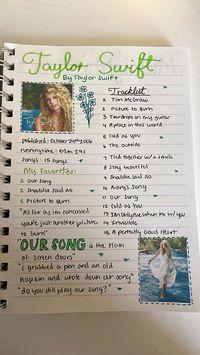 Taylor Swift
By Taylor Swift
Tracklist
1 Tim McGraw
2 Picture to Burn
3 Teardrops on my guitar
4 A place in this world
5 Cold as you
6 The outside
7 Tied together w/ a smile
8 Stay beautiful
9 Should've said no
10 Mary's Song
11 Our song
12 Cold as You
13 I'm only me when I'm w/ you
14 Invisible
15 A perfectly Good Heart
published: October 24th 2006
running time:
songs: 15 songs
My Favorites
1 our song
2 should've said no
3 Picture to Burn
"As far as im concerned
you're just another picture
to burn"
"OUR SONG is the slam
of screen doors"
"i grabbed a pen and an old
napkin and wrote down our song"
"do you still play our song?"